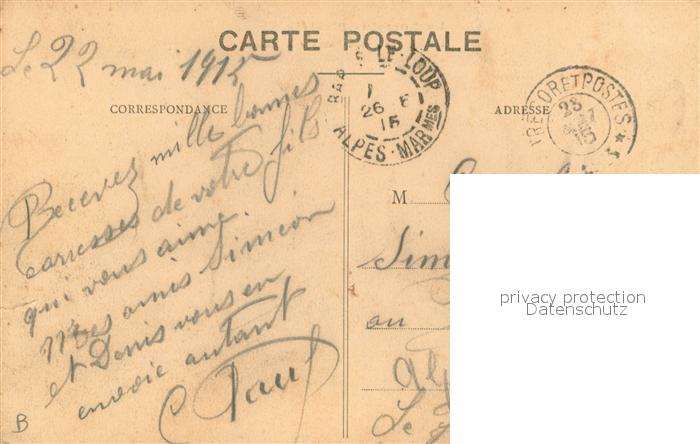 CARTE POSTALE
Le 22 mai 1915
CORRESPONDANCE
ADRESSE
BAR S LE LOUP
26 5
15
ALPES-MARMES
TRESOR ET POSTES *
Recevez mille bonnes
carresses de votre fils
qui vous aime.
Mes amis Siméon
et Denis vous en
envoie autant
Paul
M
Sim
au
Le
B
privacy protection
Datenschutz